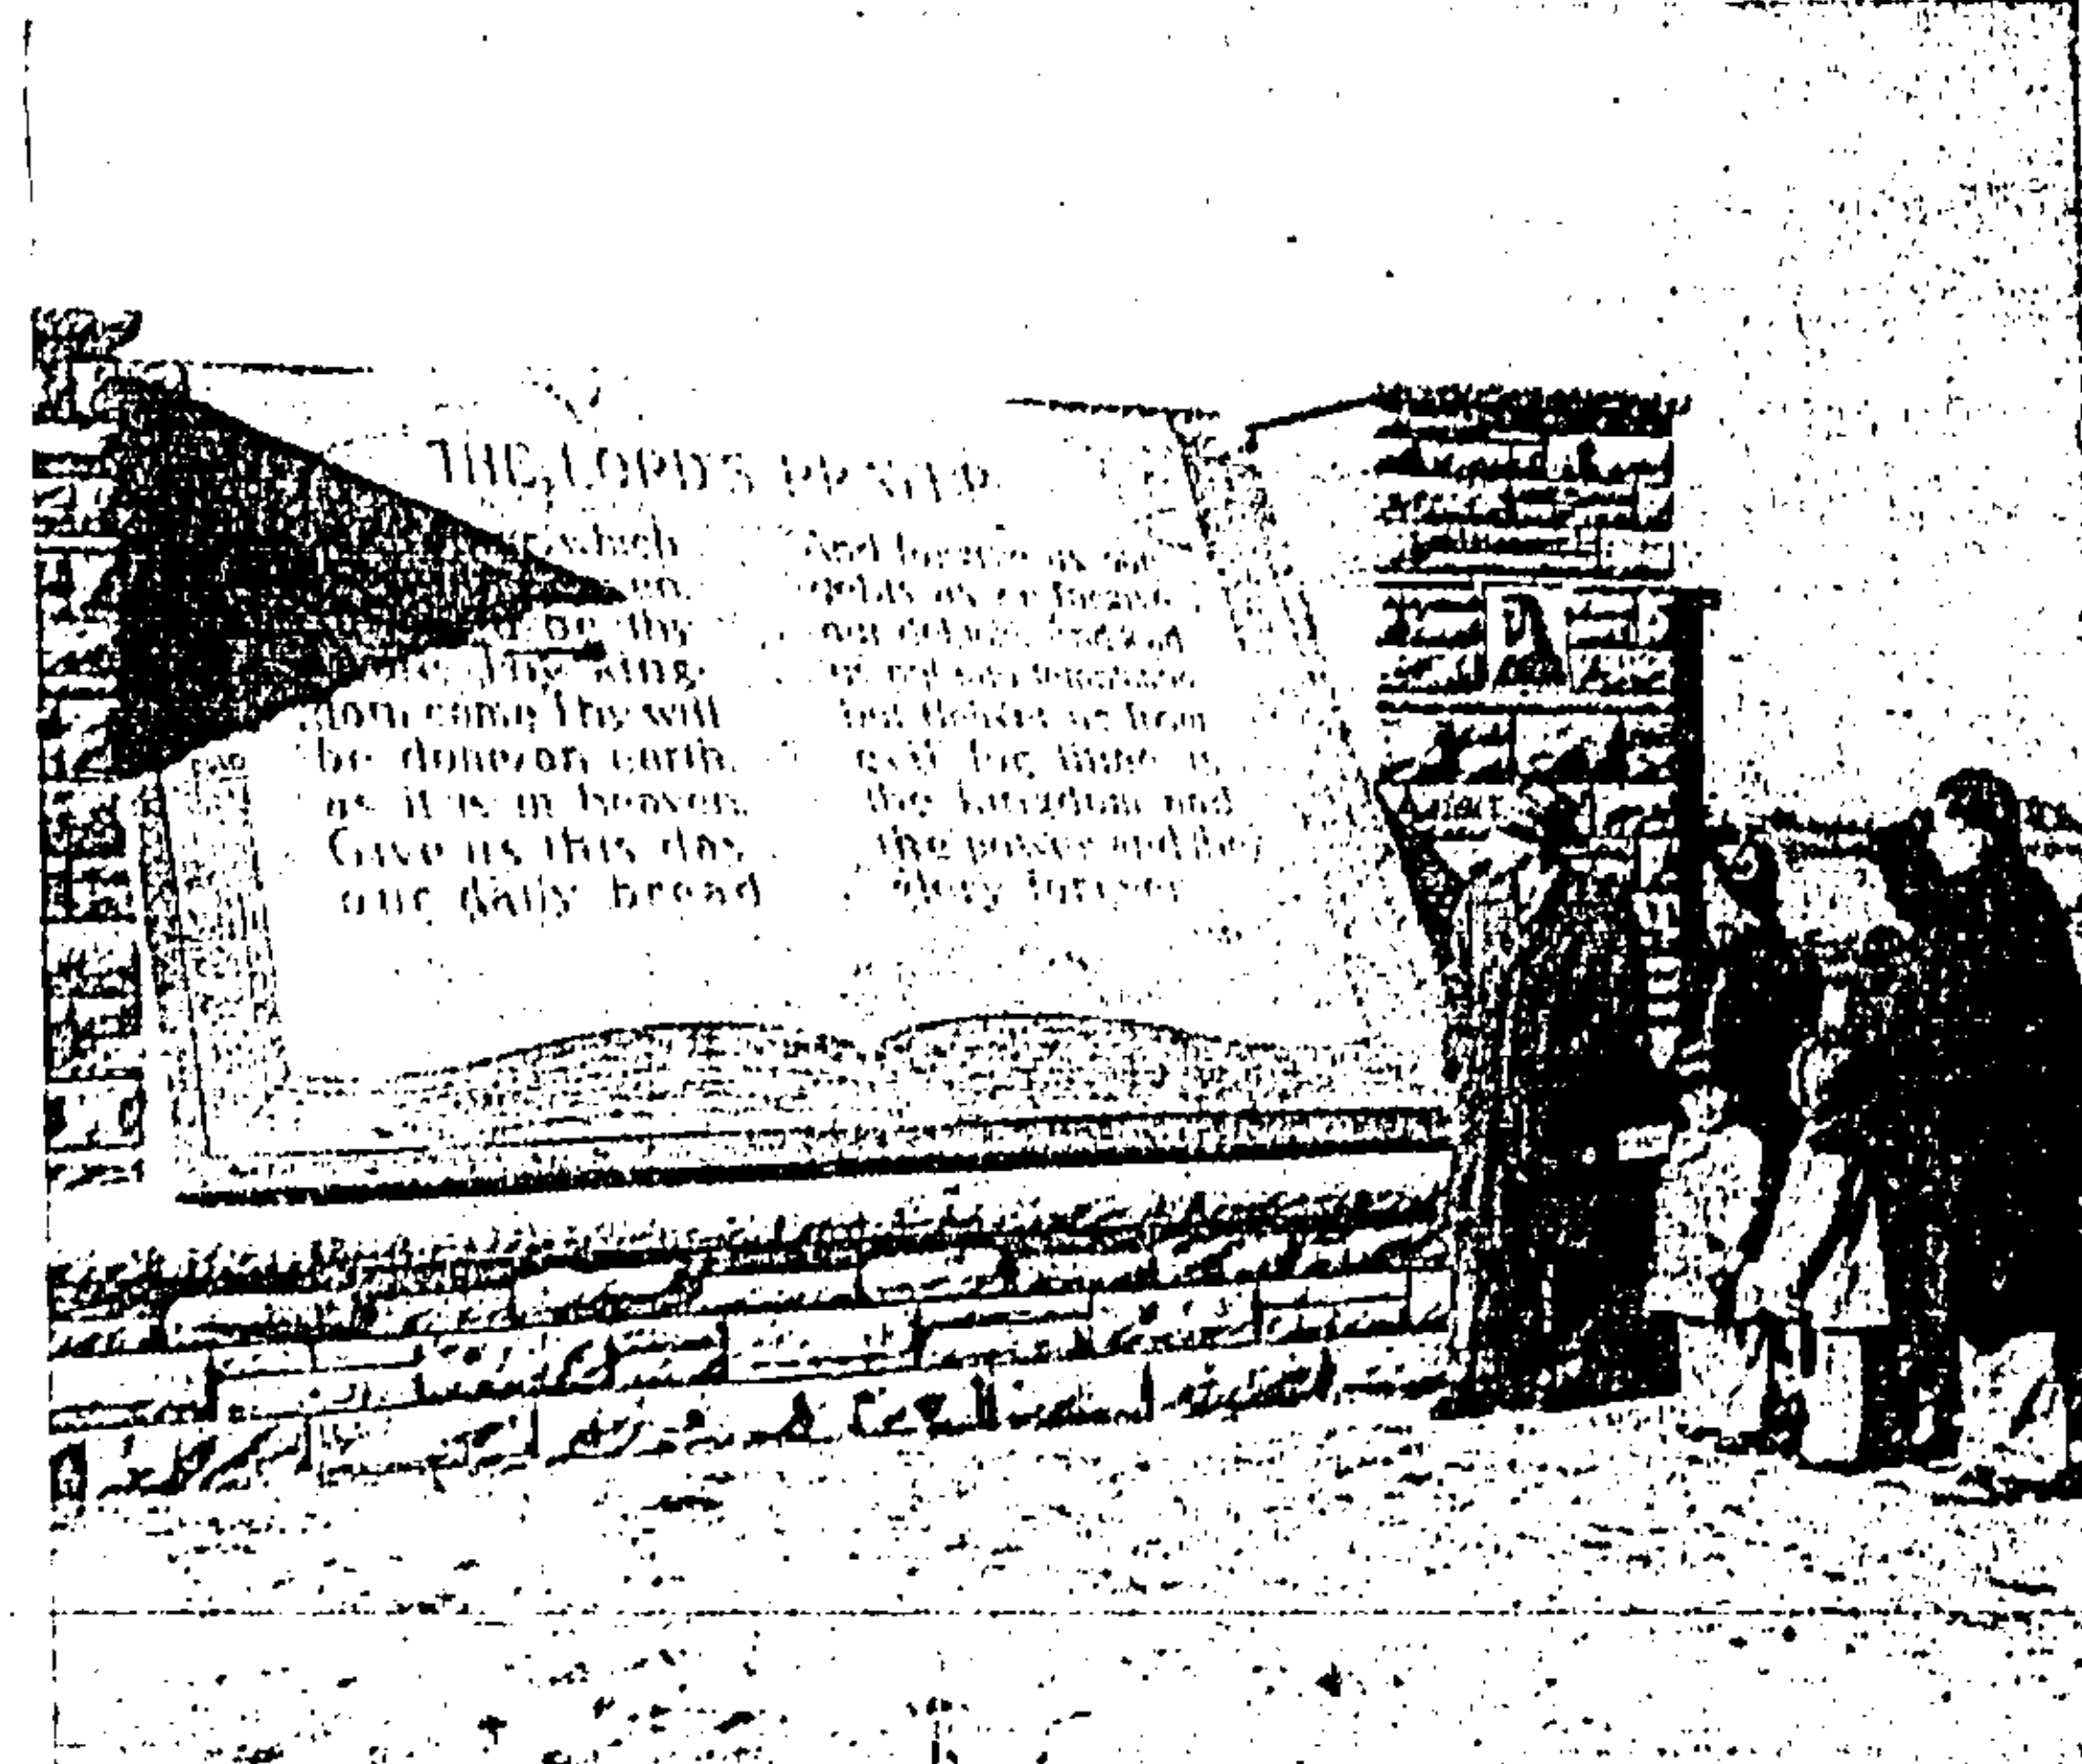 THE LORD'S PRAYER
which
be thy
Thy king-
dom come Thy will
be done on earth
as it is in heaven.
Give us this day
our daily bread
And forgive us our
debts as we forgive
our debtors. And lead
us not into temptation
but deliver us from
evil for thine is
the kingdom and
the power and the
glory forever